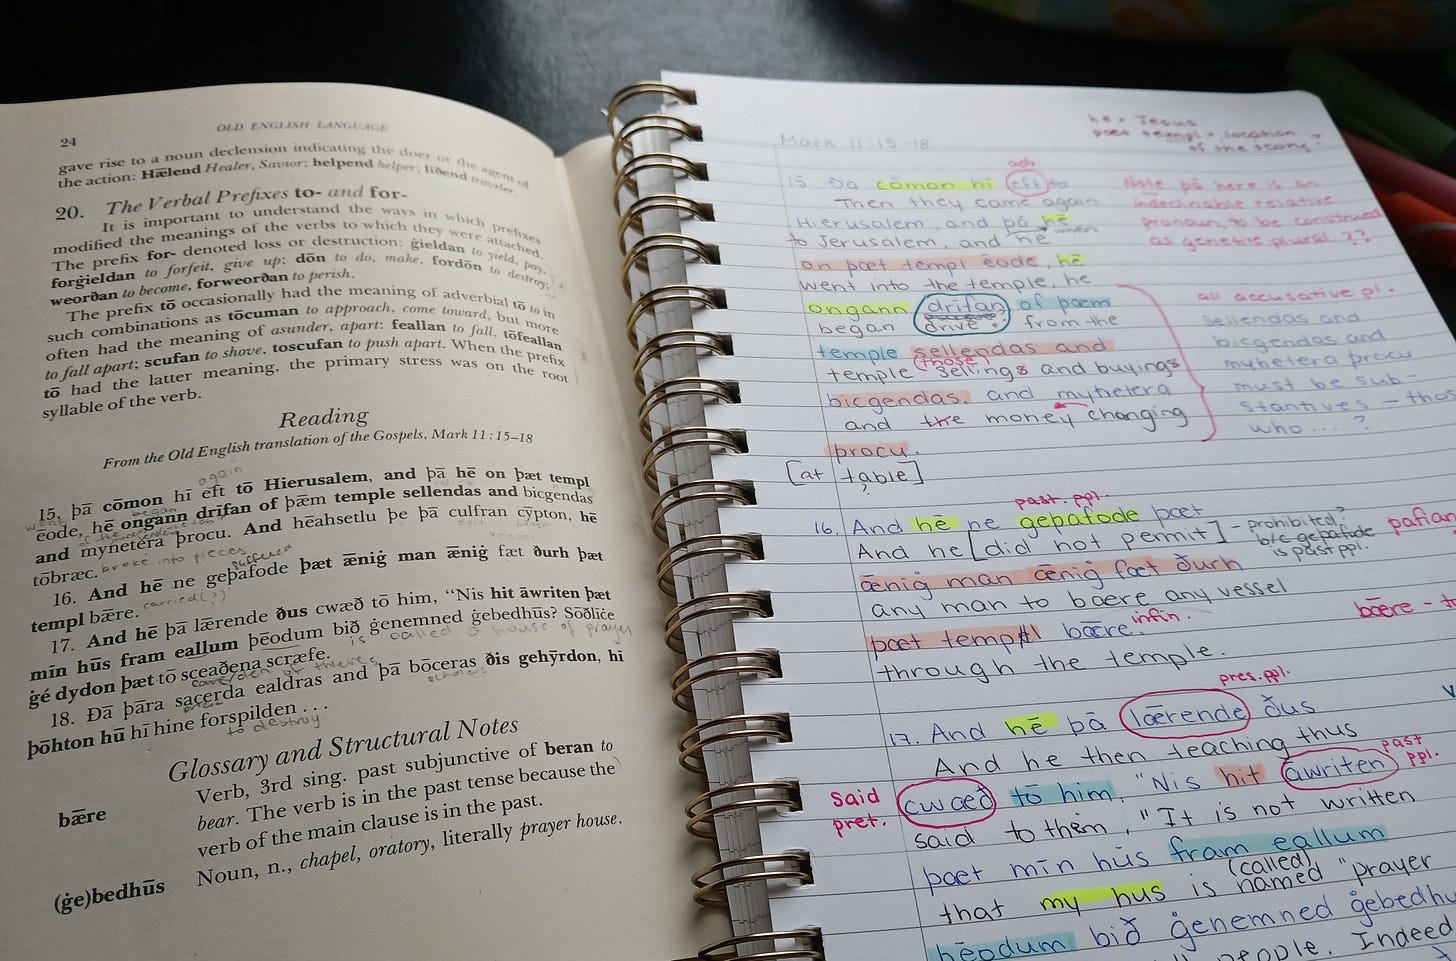 24
OLD ENGLISH LANGUAGE
gave rise to a noun declension indicating the doer or the agent of
the action: Hǣlend Healer, Savior; helpend helper; līðend traveler.
20. The Verbal Prefixes to- and for-
It is important to understand the ways in which prefixes
modified the meanings of the verbs to which they were attached.
The prefix for- denoted loss or destruction: ġieldan to yield, pay,
forġieldan to forfeit, give up; dōn to do, make, fordōn to destroy;
weorðan to become, forweorðan to perish.
The prefix tō occasionally had the meaning of adverbial tō to in
such combinations as tōcuman to approach, come toward, but more
often had the meaning of asunder, apart: feallan to fall, tōfeallan
to fall apart; scufan to shove, toscufan to push apart. When the prefix
tō had the latter meaning, the primary stress was on the root
syllable of the verb.
Reading
From the Old English translation of the Gospels, Mark 11:15–18
again
15. þā cōmon hī eft tō Hierusalem, and þā hē on þæt templ
went began
ēode, hē ongann drīfan of þǣm temple sellendas and bicgendas
and mynetera þrocu. And hēahsetlu þe þā culfran cȳpton, hē
tōbræc. broke into pieces
suffered vessel
16. And hē ne geþafode þæt ǣniġ man ǣniġ fæt ðurh þæt
templ bǣre. carried(?)
17. And hē þā lǣrende ðus cwæð tō him, “Nis hit āwriten þæt
mīn hūs fram eallum þēodum bið ġenemned ġebedhūs? Sōðlīċe
is called a house of prayer
ġé dydon þæt tō sceaðena scræfe.
cave/den of thieves
18. Ðā þāra sacerda ealdras and þā bōceras ðis gehȳrdon, hī
priest scholars
þōhton hū hī hine forspilden . . .
to destroy
Glossary and Structural Notes
bǣre Verb, 3rd sing. past subjunctive of beran to
bear. The verb is in the past tense because the
verb of the main clause is in the past.
(ġe)bedhūs Noun, n., chapel, oratory, literally prayer house.
Mark 11:15-18
he = Jesus
þæt templ = location
of the story?
adv.
15. Ða cōmon hī eft to
Then they came again
Hierusalem, and þā hē
when
to Jerusalem, and he
on þæt templ eode, hē
went into the temple, he
ongann drifan of þaem
began drive? from the
temple sellendas and
those
temple sellings and buyings
bicgendas, and mynetera
and the money changing
þrocu.
[at table]
?
Note: þā here is an
indeclinable relative
pronoun, to be construed
as genitive plural.??
all accusative pl.
sellendas and
bicgendas and
mynetera þrocu
must be sub-
stantives – those
who...?
past. ppl.
16. And hē ne geþafode þæt
And he [did not permit] – prohibited?
b/c geþafode
is past ppl.
þafian
ǣnig man ǣnig fæt ðurh
any man to baere any vessel
þæt templ bǣre. infin.
bǣre – to
through the temple.
pres. ppl.
17. And hē þā lǣrende ðus
And he then teaching thus
past
ppl.
said
pret.
cwaeð tō him, "Nis hit awriten
said to them, "It is not written
þæt mīn hūs fram eallum
(called)
that my hus is named "prayer
þēodum bið ġenemned ġebedhu
people. Indeed